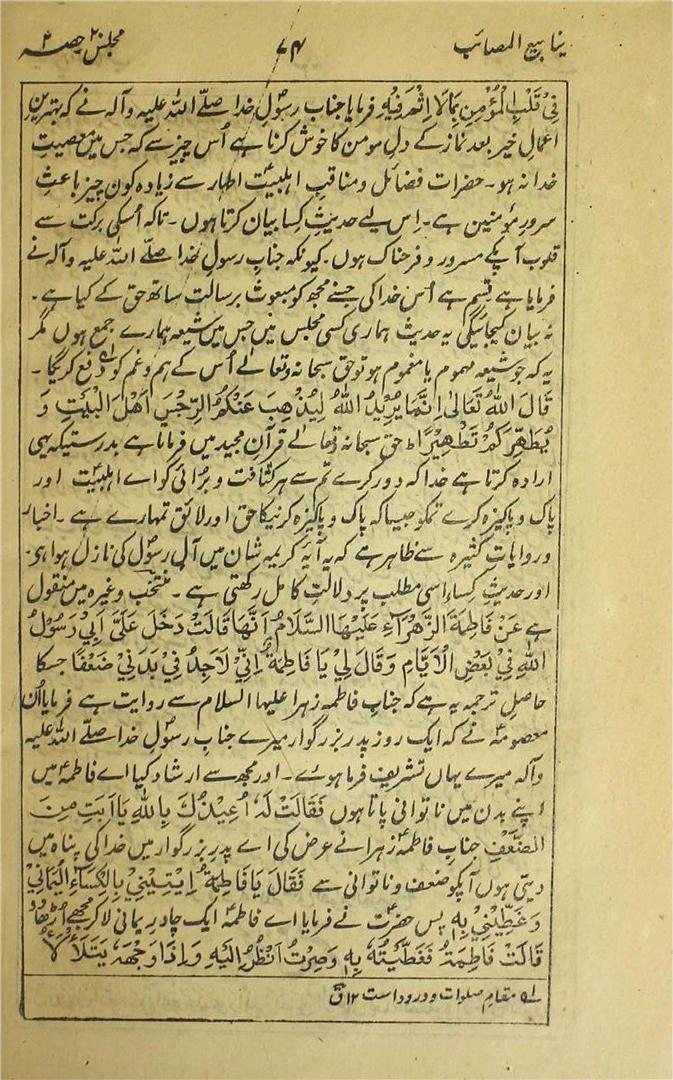 ینابیع المصائب ۷۴ مجلس۲۰ حصہ ۲
فِیْ قَلْبِ الْمُؤْمِنِ بِمَالَا اِثْمَ فِیْہِ فرمایا جناب رسولِ خدا صلّے اللہ علیہ وآلہ نے کہ بہترین
اعمالِ خیر بعد نماز کے دل مومن کا خوش کرنا ہے اُس چیز سے کہ جس میں معصیتِ
خدا نہ ہو۔ حضرات فضائل و مناقبِ اہلبیتؑ اطہار سے زیادہ کون چیز باعثِ
سرورِ مؤمنین ہے۔ اِس لیے حدیثِ کسا بیان کرتا ہوں۔ تاکہ اُسکی برکت سے
قلوب آپکے مسرور و فرحناک ہوں۔ کیونکہ جناب رسولِ خدا صلّے اللہ علیہ وآلہ نے
فرمایا ہے قسم ہے اُس خدا کی جسنے مجھ کو مبعوث برسالت ساتھ حق کے کیا ہے۔
نہ بیان کیجائیگی یہ حدیث ہماری کسی مجلس میں جس میں شیعہ ہمارے جمع ہوں مگر
یہ کہ جو شیعہ مہموم یا مغموم ہو تو حق سبحانہ وتعالےٰ اُس کے ہم و غم کو دفع کریگا۔
قَالَ اللہُ تَعَالیٰ اِنَّمَا یُرِیْدُ اللہُ لِیُذْھِبَ عَنْکُمُ الرِّجْسَ اَھْلَ الْبَیْتِ وَ
یُطَھِّرَکُمْ تَطْھِیْرًا ط حق سبحانہ وتعالےٰ قرآنِ مجید میں فرماتا ہے بدرستیکہ یہی
ارادہ کرتا ہے خدا کہ دور کرے تم سے ہر کثافت و بُرائی کو اے اہلبیتؑ اور
پاک و پاکیزہ کرے تمکو جیسا کہ پاک و پاکیزہ کرنیکا حق اور لائق تمہارے ہے۔ اخبار
و روایات کثیرہ سے ظاہر ہے کہ یہ آیۂ کریمہ شان میں آلِ رسولؐ کی نازل ہوا ہی۔
اور حدیثِ کساء اسی مطلب پر دلالتِ کامل رکھتی ہے۔ منتخب وغیرہ میں منقول
ہے عَنْ فَاطِمَۃَ الزَّھْرَآءِ عَلَیْھَا السَّلَامُ اَنَّھَا قَالَتْ دَخَلَ عَلَیَّ اَبِیْ رَسُوْلُ
اللہِ فِیْ بَعْضِ الْاَیَّامِ وَقَالَ لِیْ یَا فَاطِمَۃُ اِنِّیْ لَاَجِدُ فِیْ بَدَنِیْ ضَعْفًا جسکا
حاصلِ ترجمہ یہ ہے کہ جناب فاطمہ زہرا علیہا السلام سے روایت ہے فرمایا اُن
معصومہؑ نے کہ ایک روز پدرِ بزرگوار میرے جناب رسولِ خدا صلّے اللہ علیہ
وآلہ میرے یہاں تشریف فرما ہوئے۔ اور مجھ سے ارشاد کیا اے فاطمہؑ میں
اپنے بدن میں ناتوانی پاتا ہوں فَقَالَتْ لَہٗ اُعِیْذُکَ بِاللہِ یَا اَبَتِ مِنَ
الضَّعْفِ جناب فاطمہؑ زہرا نے عرض کی اے پدرِ بزرگوار میں خدا کی پناہ میں
دیتی ہوں آپکو ضعف و ناتوانی سے فَقَالَ یَا فَاطِمَۃُ اِیْتِیْنِیْ بِالْکِسَآءِ الْیَمَانِیِّ
وَغَطِّیْنِیْ بِہٖ پس حضرتؐ نے فرمایا اے فاطمہؑ ایک چادر یمانی لا کر مجھے اُڑھا دو
قَالَتْ فَاطِمَۃُ فَغَطَّیْتُہٗ بِہٖ وَصِرْتُ اَنْظُرُ اِلَیْہِ وَاِذَا وَجْھُہٗ یَتَلَأْ لَأُ
ـلہ مقام صلوات و درود است ۱۲